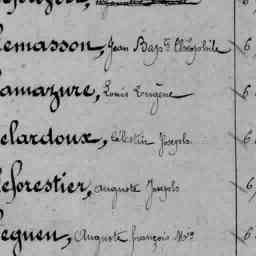 emasson, Jean Bap^te Théophile 6
amazure, Louis Eugène 6
elardoux, Célestin Joseph 6
eforestier, Auguste Joseph 6
eguen, Auguste François M^ie 6